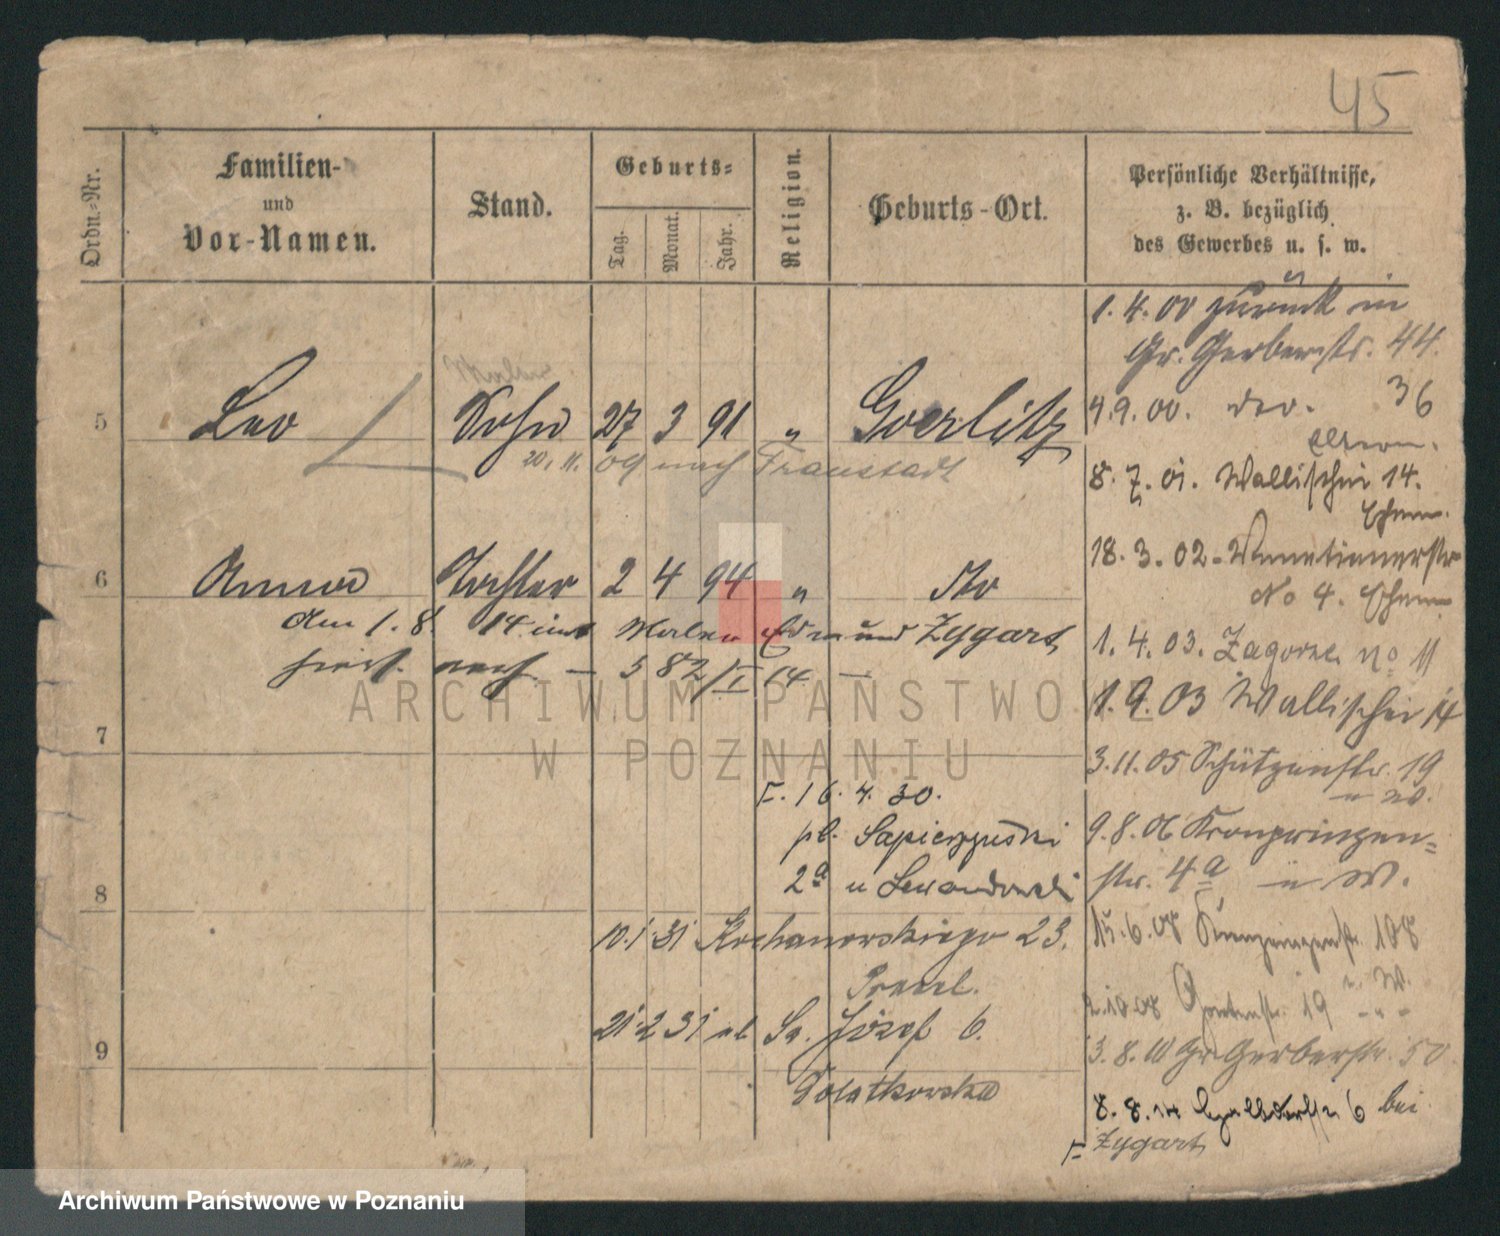 45
Ordn.-Nr.
Familien-
und
Vor-Namen.
Stand.
Geburts-
Tag.
Monat.
Jahr.
Religion.
Geburts-Ort.
Persönliche Verhältnisse,
z. B. bezüglich
des Gewerbes u. s. w.
5 Leo Sohn 27 3 91 " Goerlitz
20. 11. 09 nach Fraustadt
6 Anna Tochter 2 4 94 " dto
am 1. 8. 14 mit Maler Edmund Zygart
5 82/I 14 —
7
F. 16. 4. 30.
pl. Sapieżyński
2a u Lewandowski
8
10.1 31 Kochanowskiego 23.
21 2 31 ul Św. Józef 6.
9
1. 4. 00 zurück in
Gr. Gerberstr. 44.
4.9.00. dto. 36
8. 7. 01. Wallischei 14.
18. 3. 02.
No 4.
1. 4. 03. Zagorze no 11
1. 9. 03 Wallischei 14
3.11.05 Schützenstr. 19
9.8.06 Kronprinzen=
str. 4a u W.
15.6.08 Kronprinzenstr. 108
u. W.
2.10 08 Gartenstr. 19 - " -
3. 8. 10 Gr. Gerberstr. 50
8. 8. 14 6 bei
F. Zygart
ARCHIWUM PAŃSTWO
W POZNANIU
Archiwum Państwowe w Poznaniu